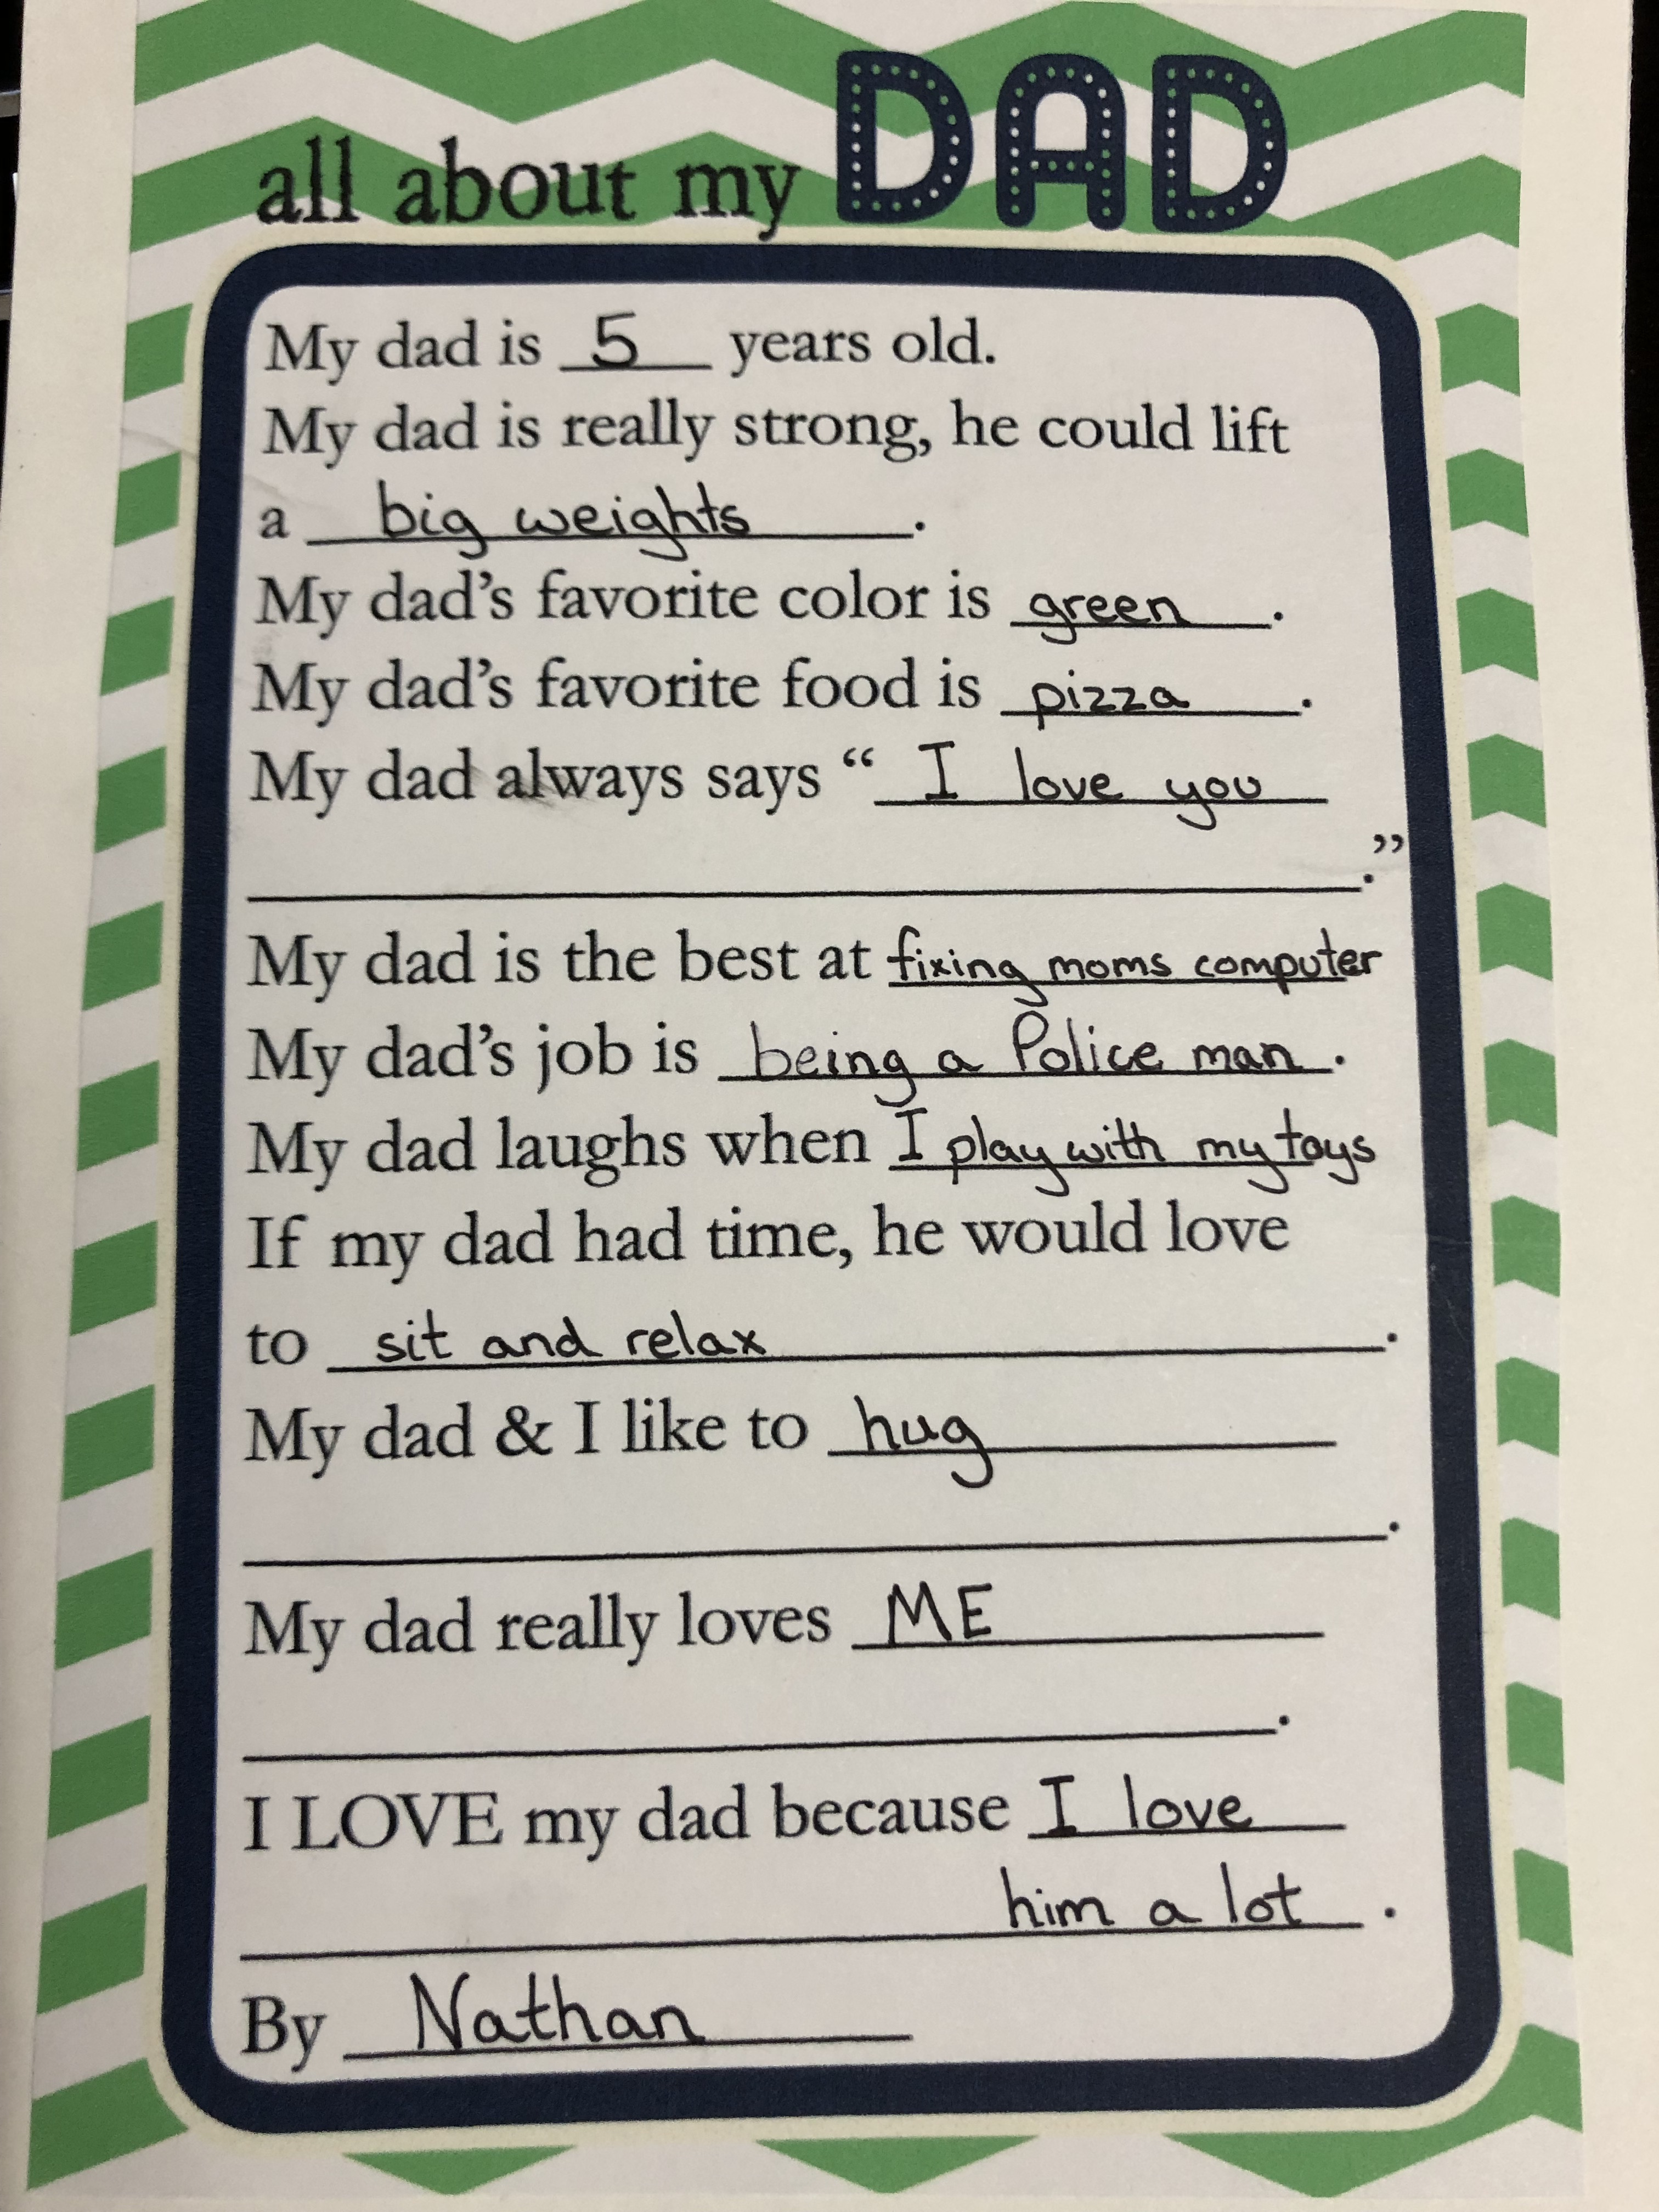 all about my DAD
My dad is 5 years old.
My dad is really strong, he could lift
a big weights.
My dad's favorite color is green.
My dad's favorite food is pizza.
My dad always says “I love you
.”
My dad is the best at fixing moms computer
My dad's job is being a Police man.
My dad laughs when I play with my toys
If my dad had time, he would love
to sit and relax.
My dad & I like to hug
.
My dad really loves ME
.
I LOVE my dad because I love
him a lot.
By Nathan